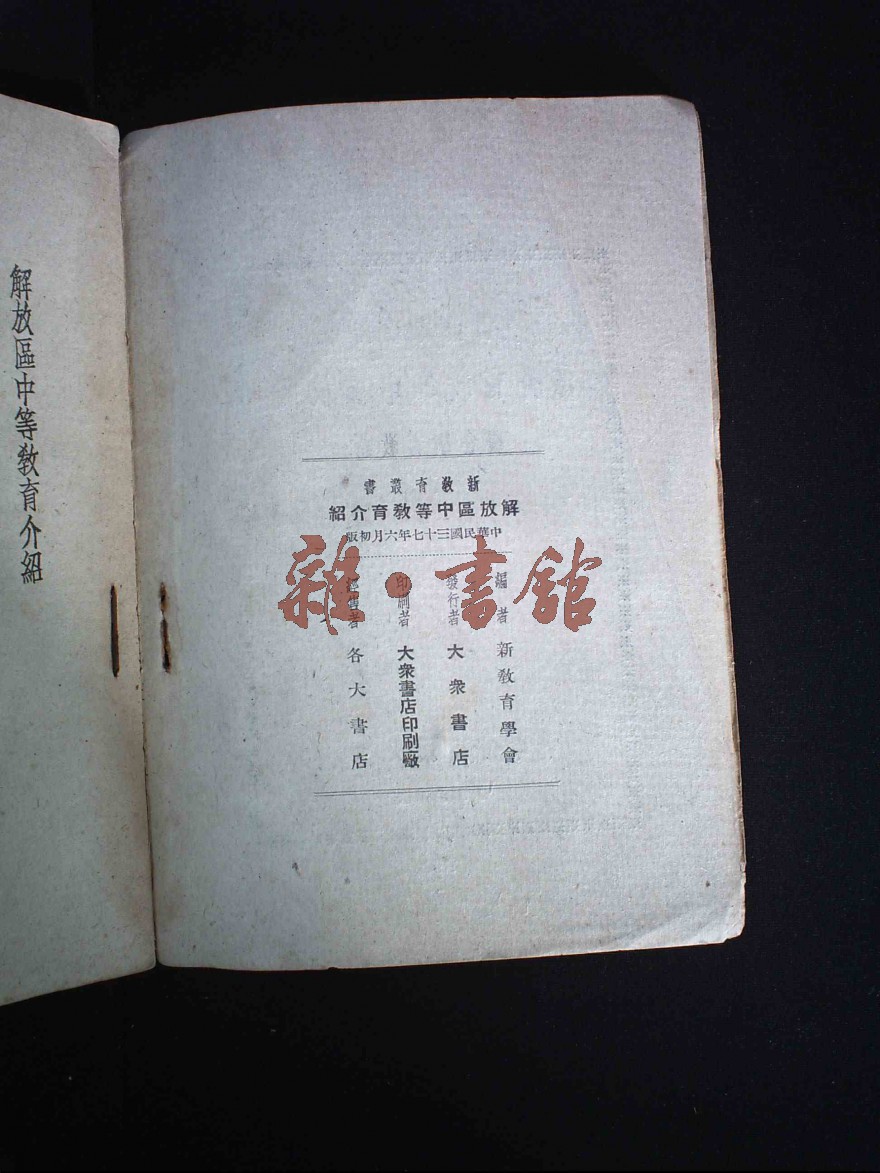 新敎育叢書
解放區中等敎育介紹
中華民國三十七年六月初版
編者 新敎育學會
發行者 大衆書店
印刷者 大衆書店印刷廠
經售者 各大書店
解放區中等敎育介紹
雜·書館